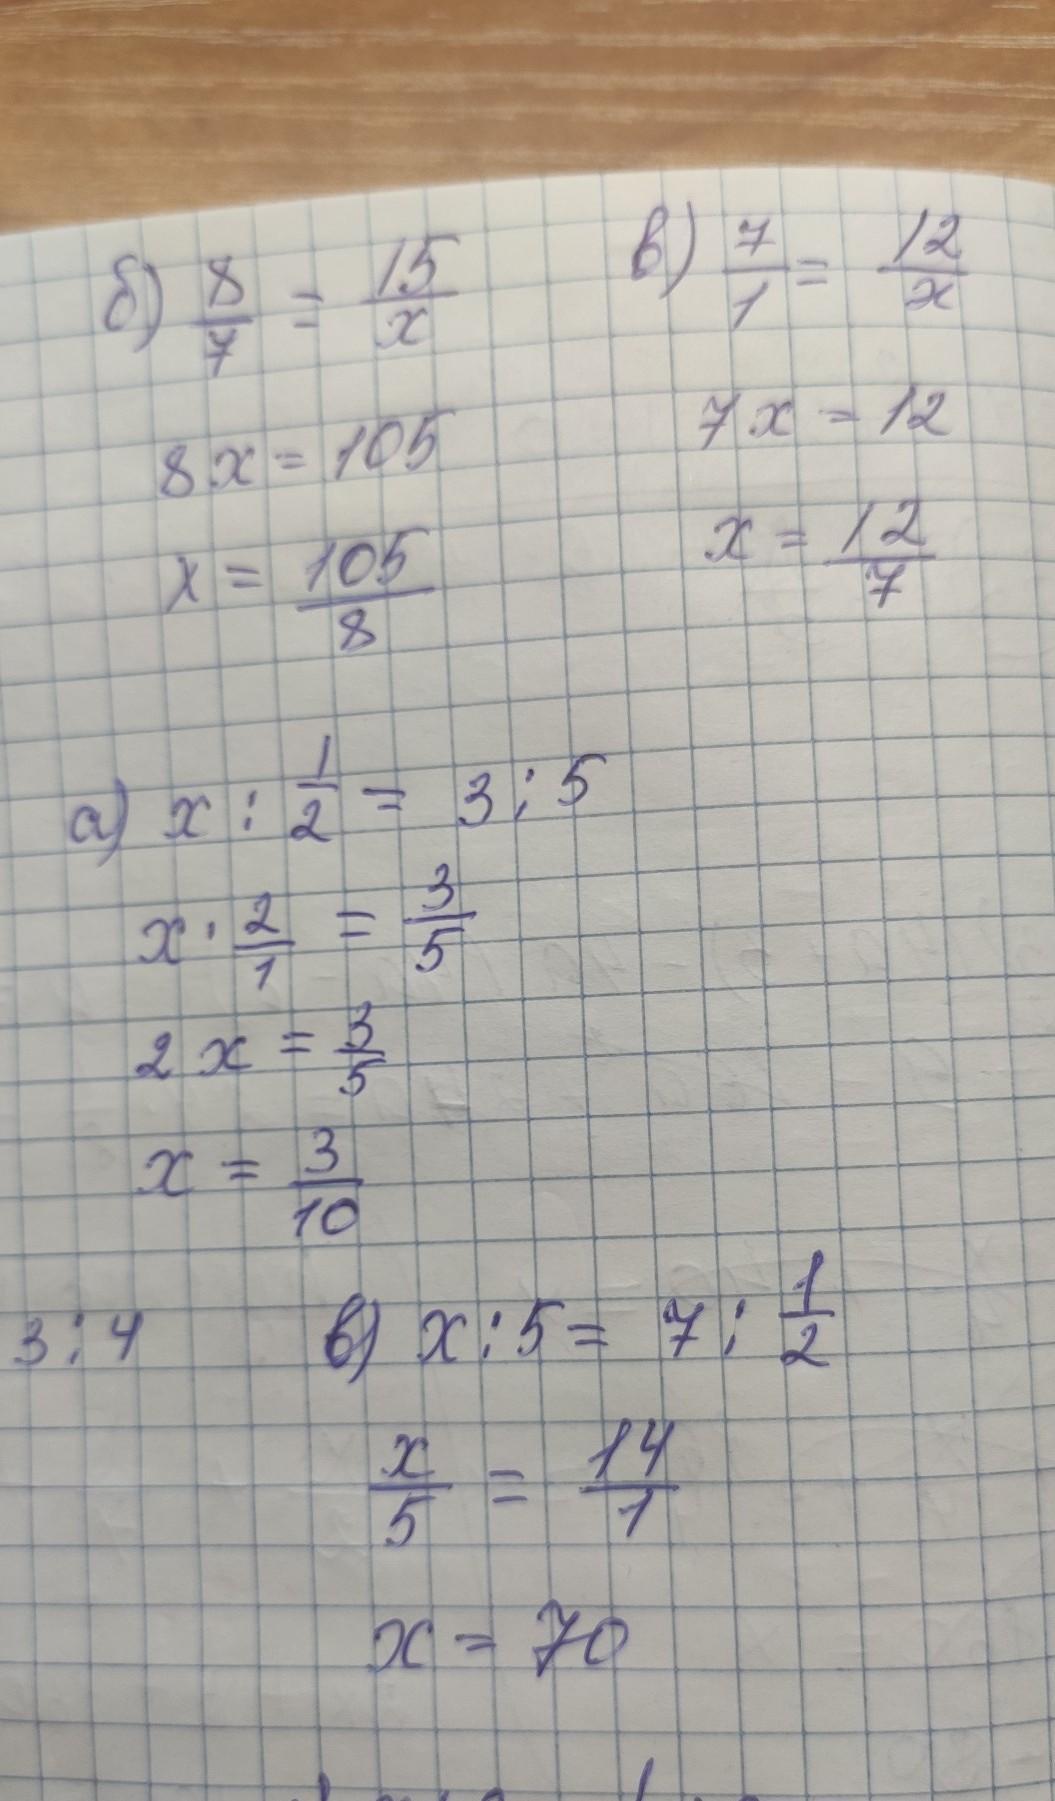 б) 8/7 = 15/x
8x = 105
x = 105/8
в) 7/1 = 12/x
7x = 12
x = 12/7
а) x : 1/2 = 3 : 5
x · 2/1 = 3/5
2x = 3/5
x = 3/10
3 : 4
в) x : 5 = 7 : 1/2
x/5 = 14/1
x = 70